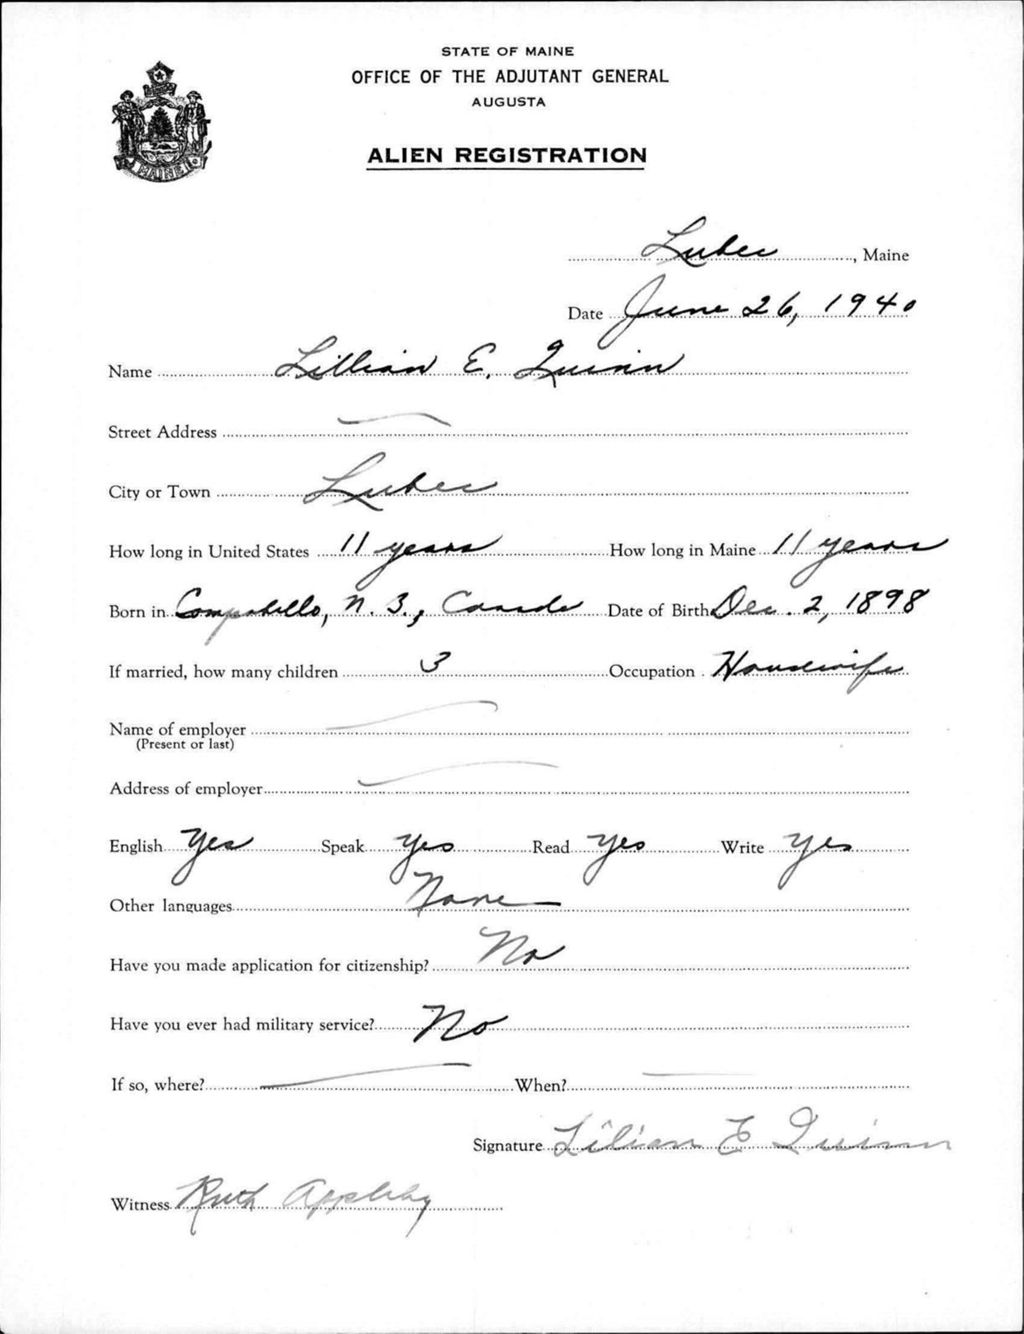 STATE OF MAINE
OFFICE OF THE ADJUTANT GENERAL
AUGUSTA
ALIEN REGISTRATION
MAINE
Lubec, Maine
Date June 26, 1940
Name Lillian E. Quinn
Street Address
City or Town Lubec
How long in United States 11 years How long in Maine 11 years
Born in Campobello, N. B., Canada Date of Birth Dec. 2, 1898
If married, how many children 3 Occupation Housewife
Name of employer
(Present or last)
Address of employer
English Yes Speak Yes Read Yes Write Yes
Other languages None
Have you made application for citizenship? No
Have you ever had military service? No
If so, where? When?
Signature Lilian E Quinn
Witness Ruth Appleby